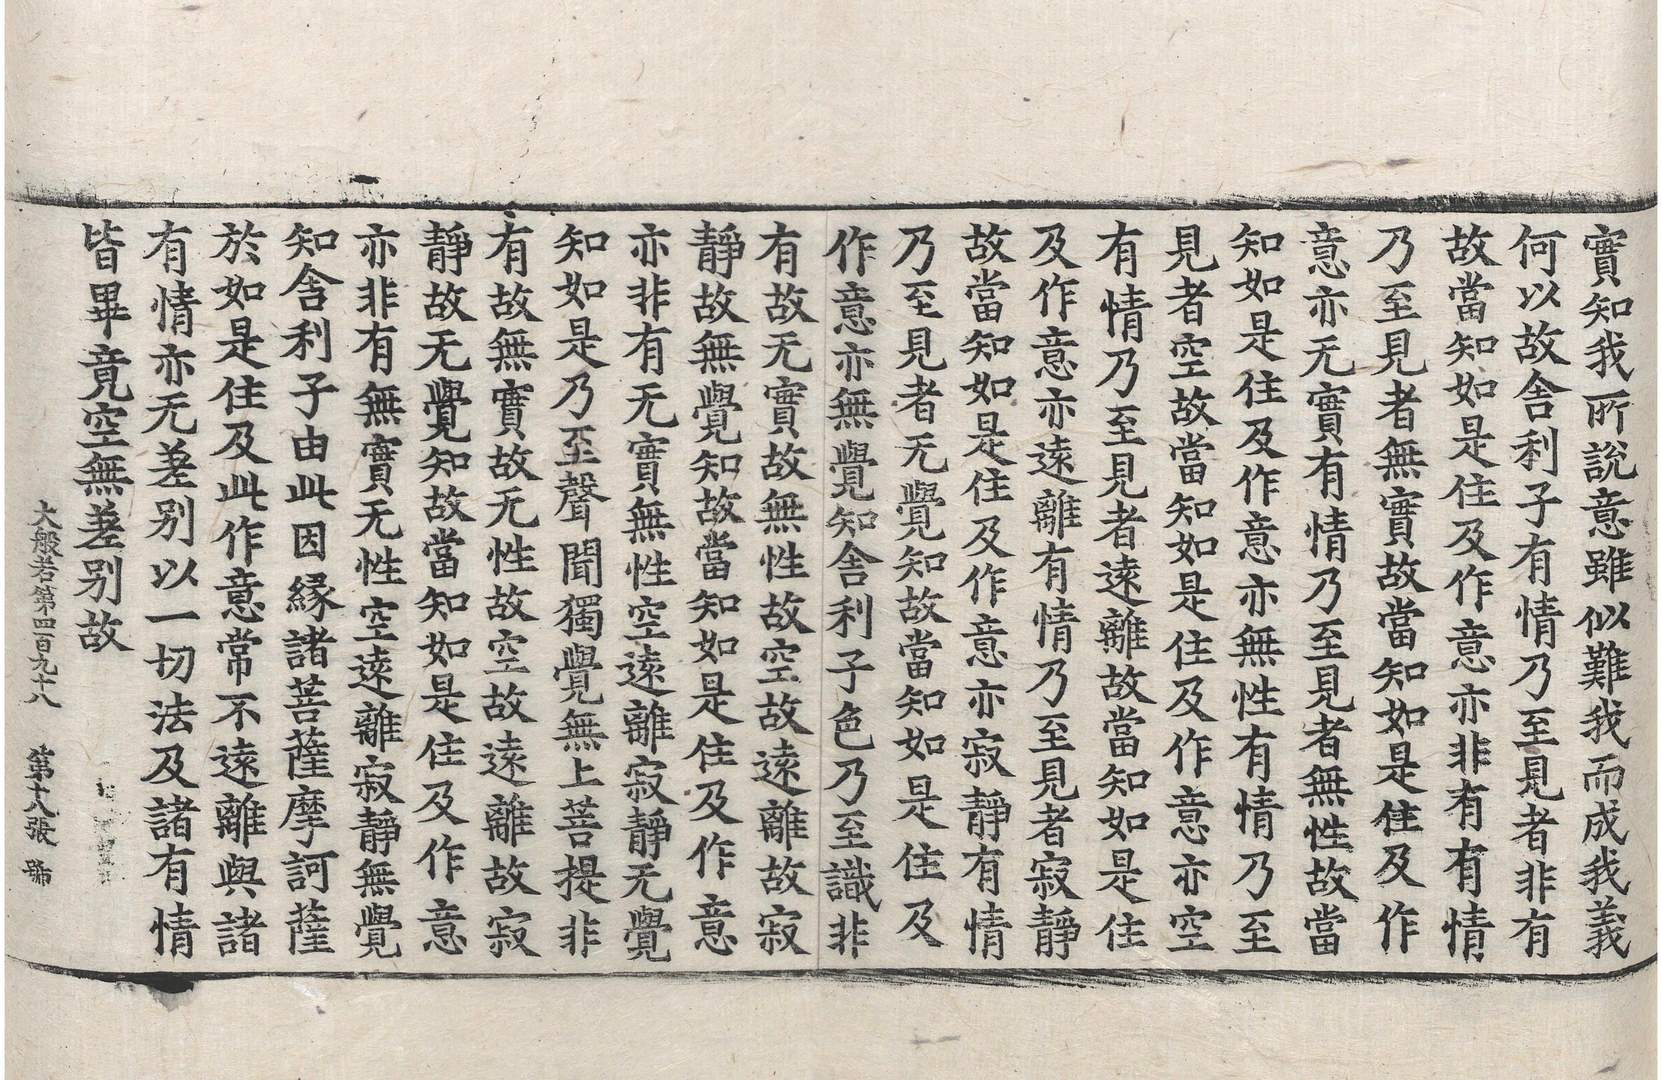 實知我所說意雖似難我而成我義
何以故舍利子有情乃至見者非有
故當知如是住及作意亦非有有情
乃至見者無實故當知如是住及作
意亦无實有情乃至見者無性故當
知如是住及作意亦無性有情乃至
見者空故當知如是住及作意亦空
有情乃至見者遠離故當知如是住
及作意亦遠離有情乃至見者寂靜
故當知如是住及作意亦寂靜有情
乃至見者无覺知故當知如是住及
作意亦無覺知舍利子色乃至識非
有故无實故無性故空故遠離故寂
靜故無覺知故當知如是住及作意
亦非有无實無性空遠離寂靜无覺
知如是乃至聲聞獨覺無上菩提非
有故無實故无性故空故遠離故寂
靜故无覺知故當知如是住及作意
亦非有無實无性空遠離寂靜無覺
知舍利子由此因緣諸菩薩摩訶薩
於如是住及此作意常不遠離與諸
有情亦无差别以一切法及諸有情
皆畢竟空無差别故
大般若第四百九十八 第十八張 號